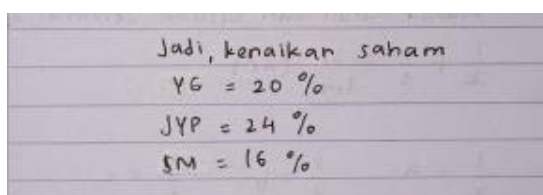 Jadi, kenaikan saham
YG = 20 %
JYP = 24 %
SM = 16 %